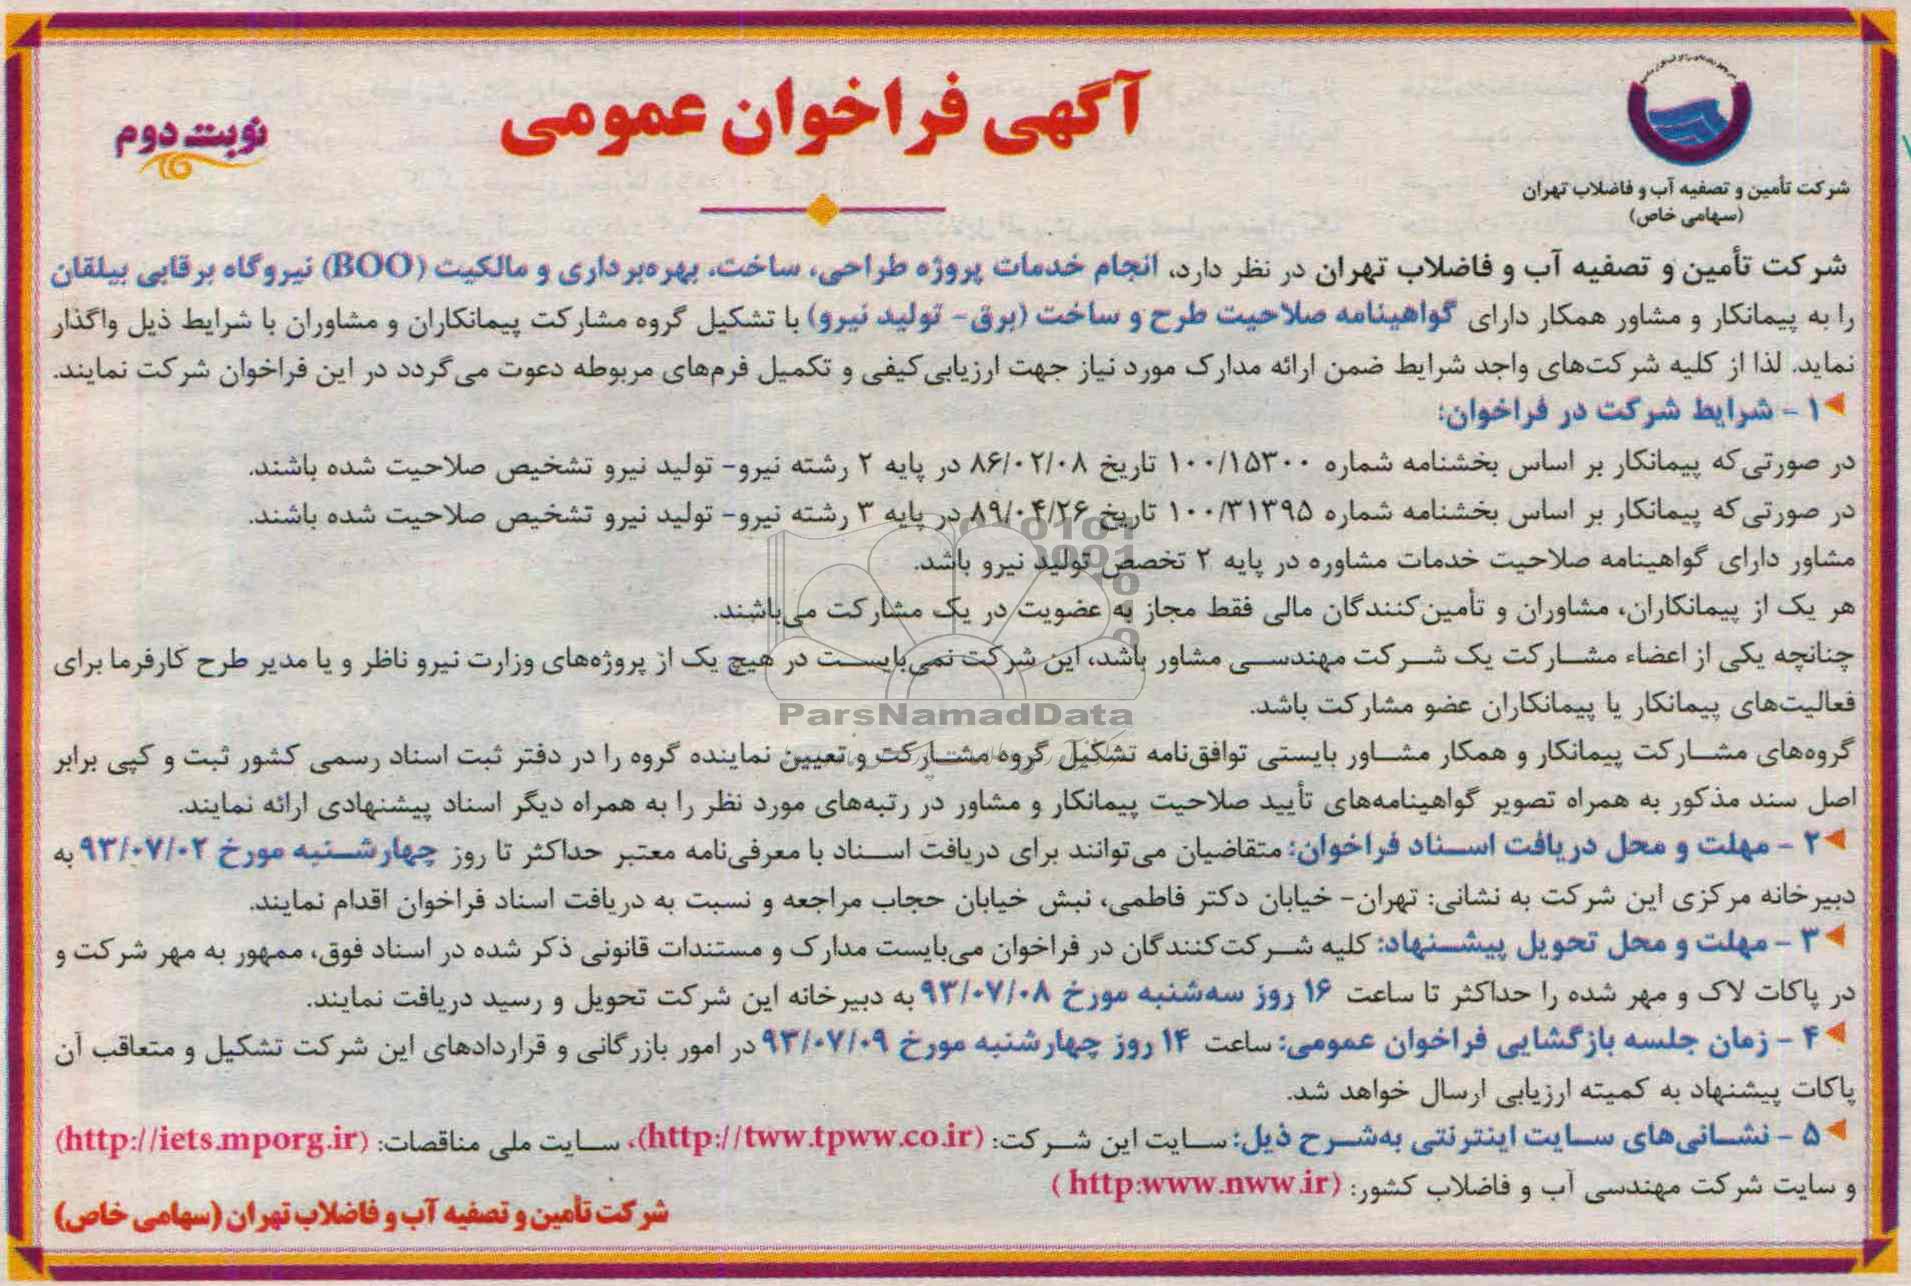 آگهی فراخوان عمومی
نوبت دوم
شرکت تأمین و تصفیه آب و فاضلاب تهران
(سهامی خاص)
شرکت تأمین و تصفیه آب و فاضلاب تهران در نظر دارد، انجام خدمات پروژه طراحی، ساخت، بهره‌برداری و مالکیت (BOO) نیروگاه برقابی بیلقان
را به پیمانکار و مشاور همکار دارای گواهینامه صلاحیت طرح و ساخت (برق- تولید نیرو) با تشکیل گروه مشارکت پیمانکاران و مشاوران با شرایط ذیل واگذار
نماید. لذا از کلیه شرکت‌های واجد شرایط ضمن ارائه مدارک مورد نیاز جهت ارزیابی کیفی و تکمیل فرم‌های مربوطه دعوت می‌گردد در این فراخوان شرکت نمایند.
۱ - شرایط شرکت در فراخوان:
در صورتی‌که پیمانکار بر اساس بخشنامه شماره ۱۰۰/۱۵۳۰۰ تاریخ ۸۶/۰۲/۰۸ در پایه ۲ رشته نیرو- تولید نیرو تشخیص صلاحیت شده باشند.
در صورتی‌که پیمانکار بر اساس بخشنامه شماره ۱۰۰/۳۱۳۹۵ تاریخ ۸۹/۰۴/۲۶ در پایه ۳ رشته نیرو- تولید نیرو تشخیص صلاحیت شده باشند.
مشاور دارای گواهینامه صلاحیت خدمات مشاوره در پایه ۲ تخصص تولید نیرو باشد.
هر یک از پیمانکاران، مشاوران و تأمین‌کنندگان مالی فقط مجاز به عضویت در یک مشارکت می‌باشند.
چنانچه یکی از اعضاء مشارکت یک شرکت مهندسی مشاور باشد، این شرکت نمی‌بایست در هیچ یک از پروژه‌های وزارت نیرو ناظر و یا مدیر طرح کارفرما برای
فعالیت‌های پیمانکار یا پیمانکاران عضو مشارکت باشد.
گروه‌های مشارکت پیمانکار و همکار مشاور بایستی توافق‌نامه تشکیل گروه مشارکت و تعیین نماینده گروه را در دفتر ثبت اسناد رسمی کشور ثبت و کپی برابر
اصل سند مذکور به همراه تصویر گواهینامه‌های تأیید صلاحیت پیمانکار و مشاور در رتبه‌های مورد نظر را به همراه دیگر اسناد پیشنهادی ارائه نمایند.
۲ - مهلت و محل دریافت اسناد فراخوان: متقاضیان می‌توانند برای دریافت اسناد با معرفی‌نامه معتبر حداکثر تا روز چهارشنبه مورخ ۹۳/۰۷/۰۲ به
دبیرخانه مرکزی این شرکت به نشانی: تهران- خیابان دکتر فاطمی، نبش خیابان حجاب مراجعه و نسبت به دریافت اسناد فراخوان اقدام نمایند.
۳ - مهلت و محل تحویل پیشنهاد: کلیه شرکت‌کنندگان در فراخوان می‌بایست مدارک و مستندات قانونی ذکر شده در اسناد فوق، ممهور به مهر شرکت و
در پاکات لاک و مهر شده را حداکثر تا ساعت ۱۶ روز سه‌شنبه مورخ ۹۳/۰۷/۰۸ به دبیرخانه این شرکت تحویل و رسید دریافت نمایند.
۴ - زمان جلسه بازگشایی فراخوان عمومی: ساعت ۱۴ روز چهارشنبه مورخ ۹۳/۰۷/۰۹ در امور بازرگانی و قراردادهای این شرکت تشکیل و متعاقب آن
پاکات پیشنهاد به کمیته ارزیابی ارسال خواهد شد.
۵ - نشانی‌های سایت اینترنتی به‌شرح ذیل: سایت این شرکت: (http://tww.tpww.co.ir)، سایت ملی مناقصات: (http://iets.mporg.ir)
و سایت شرکت مهندسی آب و فاضلاب کشور: (http:www.nww.ir)
شرکت تأمین و تصفیه آب و فاضلاب تهران (سهامی خاص)
ParsNamadData